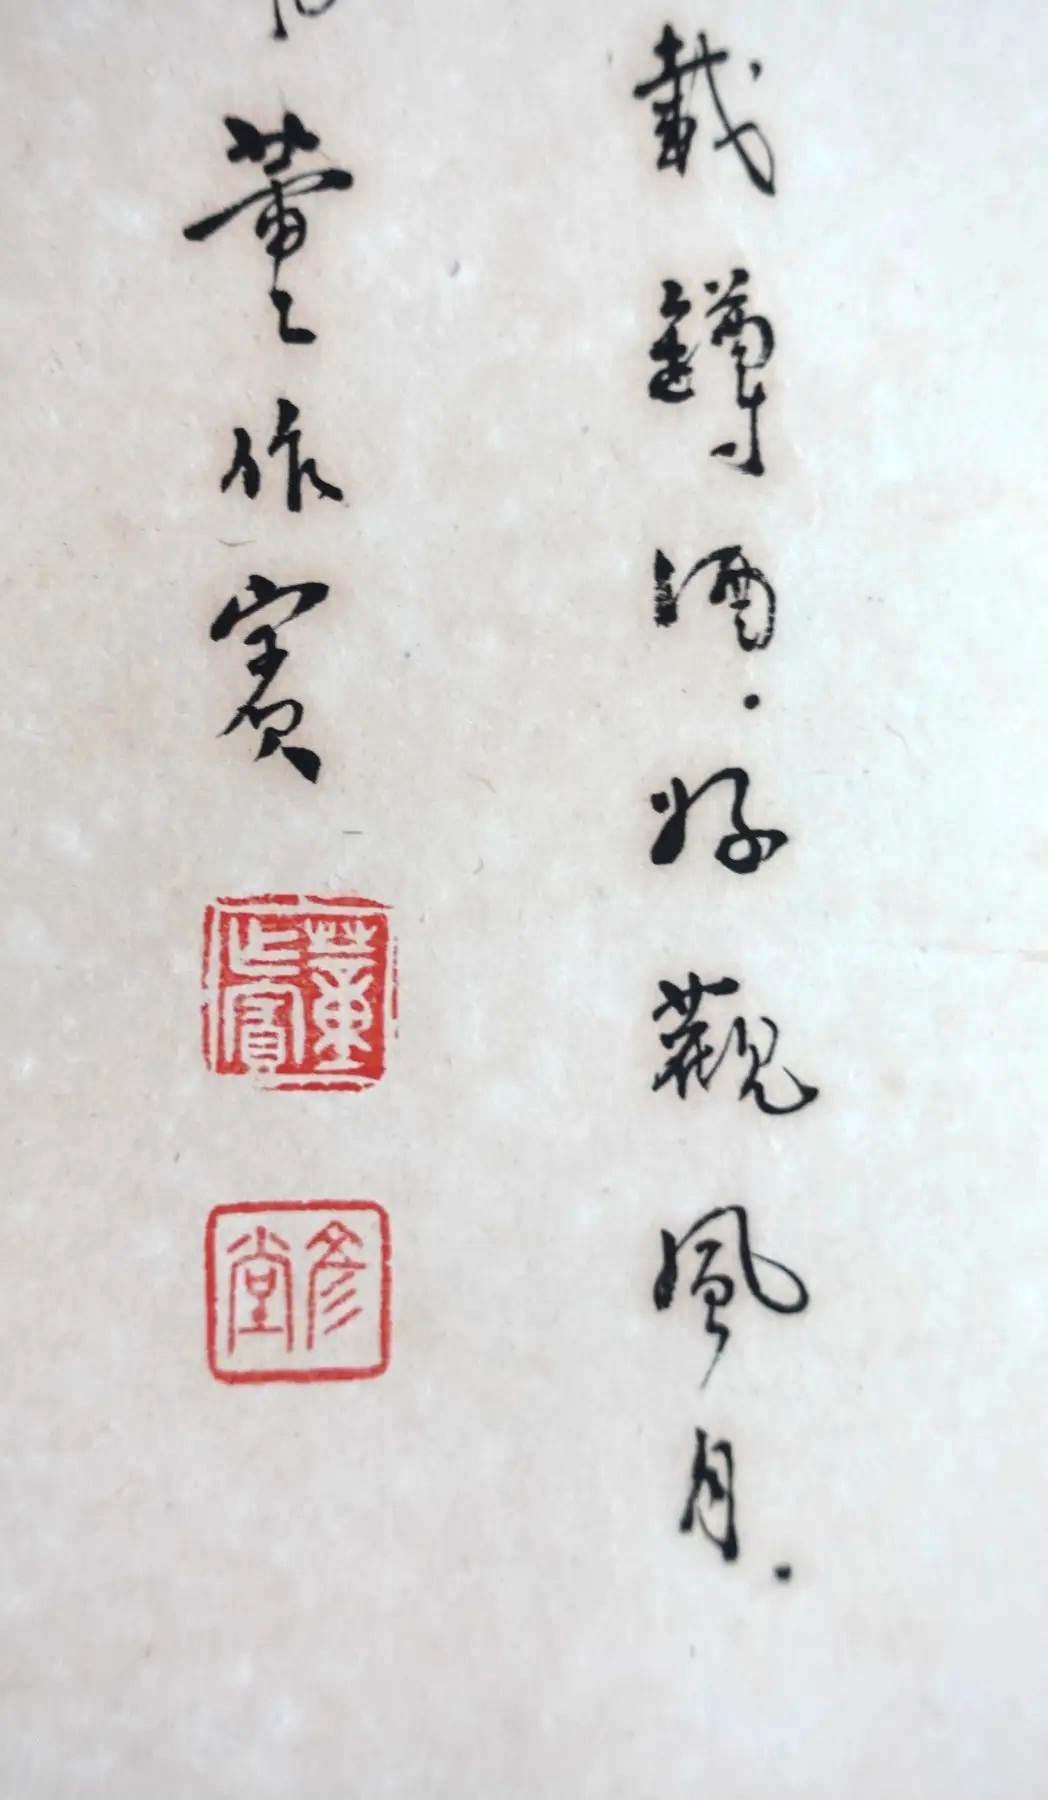 載罇酒.好觀風月.
董作賓
董作賓
彥堂